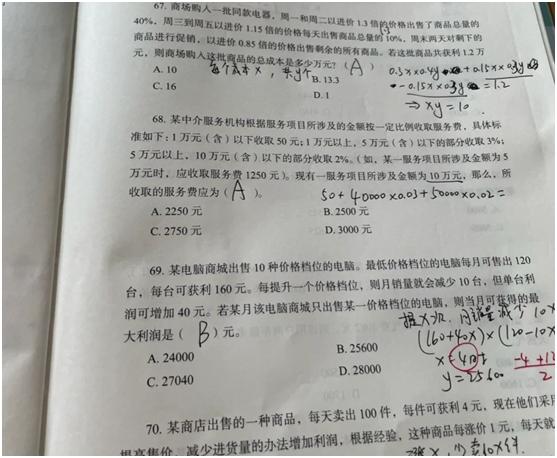 67. 商场购入一批同款电器，周一和周二以进价 1.3 倍的价格出售了商品总量的
40%，周三到周五以进价 1.15 倍的价格每天出售商品总量的 10%，周末两天对剩下的
商品进行促销，以进价 0.85 倍的价格出售剩余的所有商品。若这批商品共获利 1.2 万
元，则商场购入这批商品的总成本是多少万元？( A )
A. 10
B. 13.3
C. 16
D. 1
每个成本 x，共y个
0.3x×0.4y + 0.15x×0.3y
- 0.15x×0.3y = 1.2
⇒ xy = 10
68. 某中介服务机构根据服务项目所涉及的金额按一定比例收取服务费，具体标
准如下：1 万元（含）以下收取 50 元；1 万元以上，5 万元（含）以下的部分收取 3%；
5 万元以上，10 万元（含）以下的部分收取 2%。（如，某一服务项目所涉及金额为 5
万元时，应收取服务费 1250 元）。现有一服务项目所涉及金额为 10 万元，那么，所
收取的服务费应为( A )。
50 + 40000×0.03 + 50000×0.02 =
A. 2250 元
B. 2500 元
C. 2750 元
D. 3000 元
69. 某电脑商城出售 10 种价格档位的电脑。最低价格档位的电脑每月可售出 120
台，每台可获利 160 元。每提升一个价格档位，则月销量就会减少 10 台，但单台利
润可增加 40 元。若某月该电脑商城只出售某一价格档位的电脑，则当月可获得的最
大利润是( B )元。
A. 24000
B. 25600
C. 27040
D. 28000
提 x 次，月销量减少 10x
(160+40x)×(120-10x
x = 4时
y = 25600
-4+12
2
70. 某商店出售的一种商品，每天卖出 100 件，每件可获利 4 元，现在他们采用
提高售价、减少进货量的办法增加利润，根据经验，这种商品每涨价 1 元，每天就
涨 x，少卖10x件